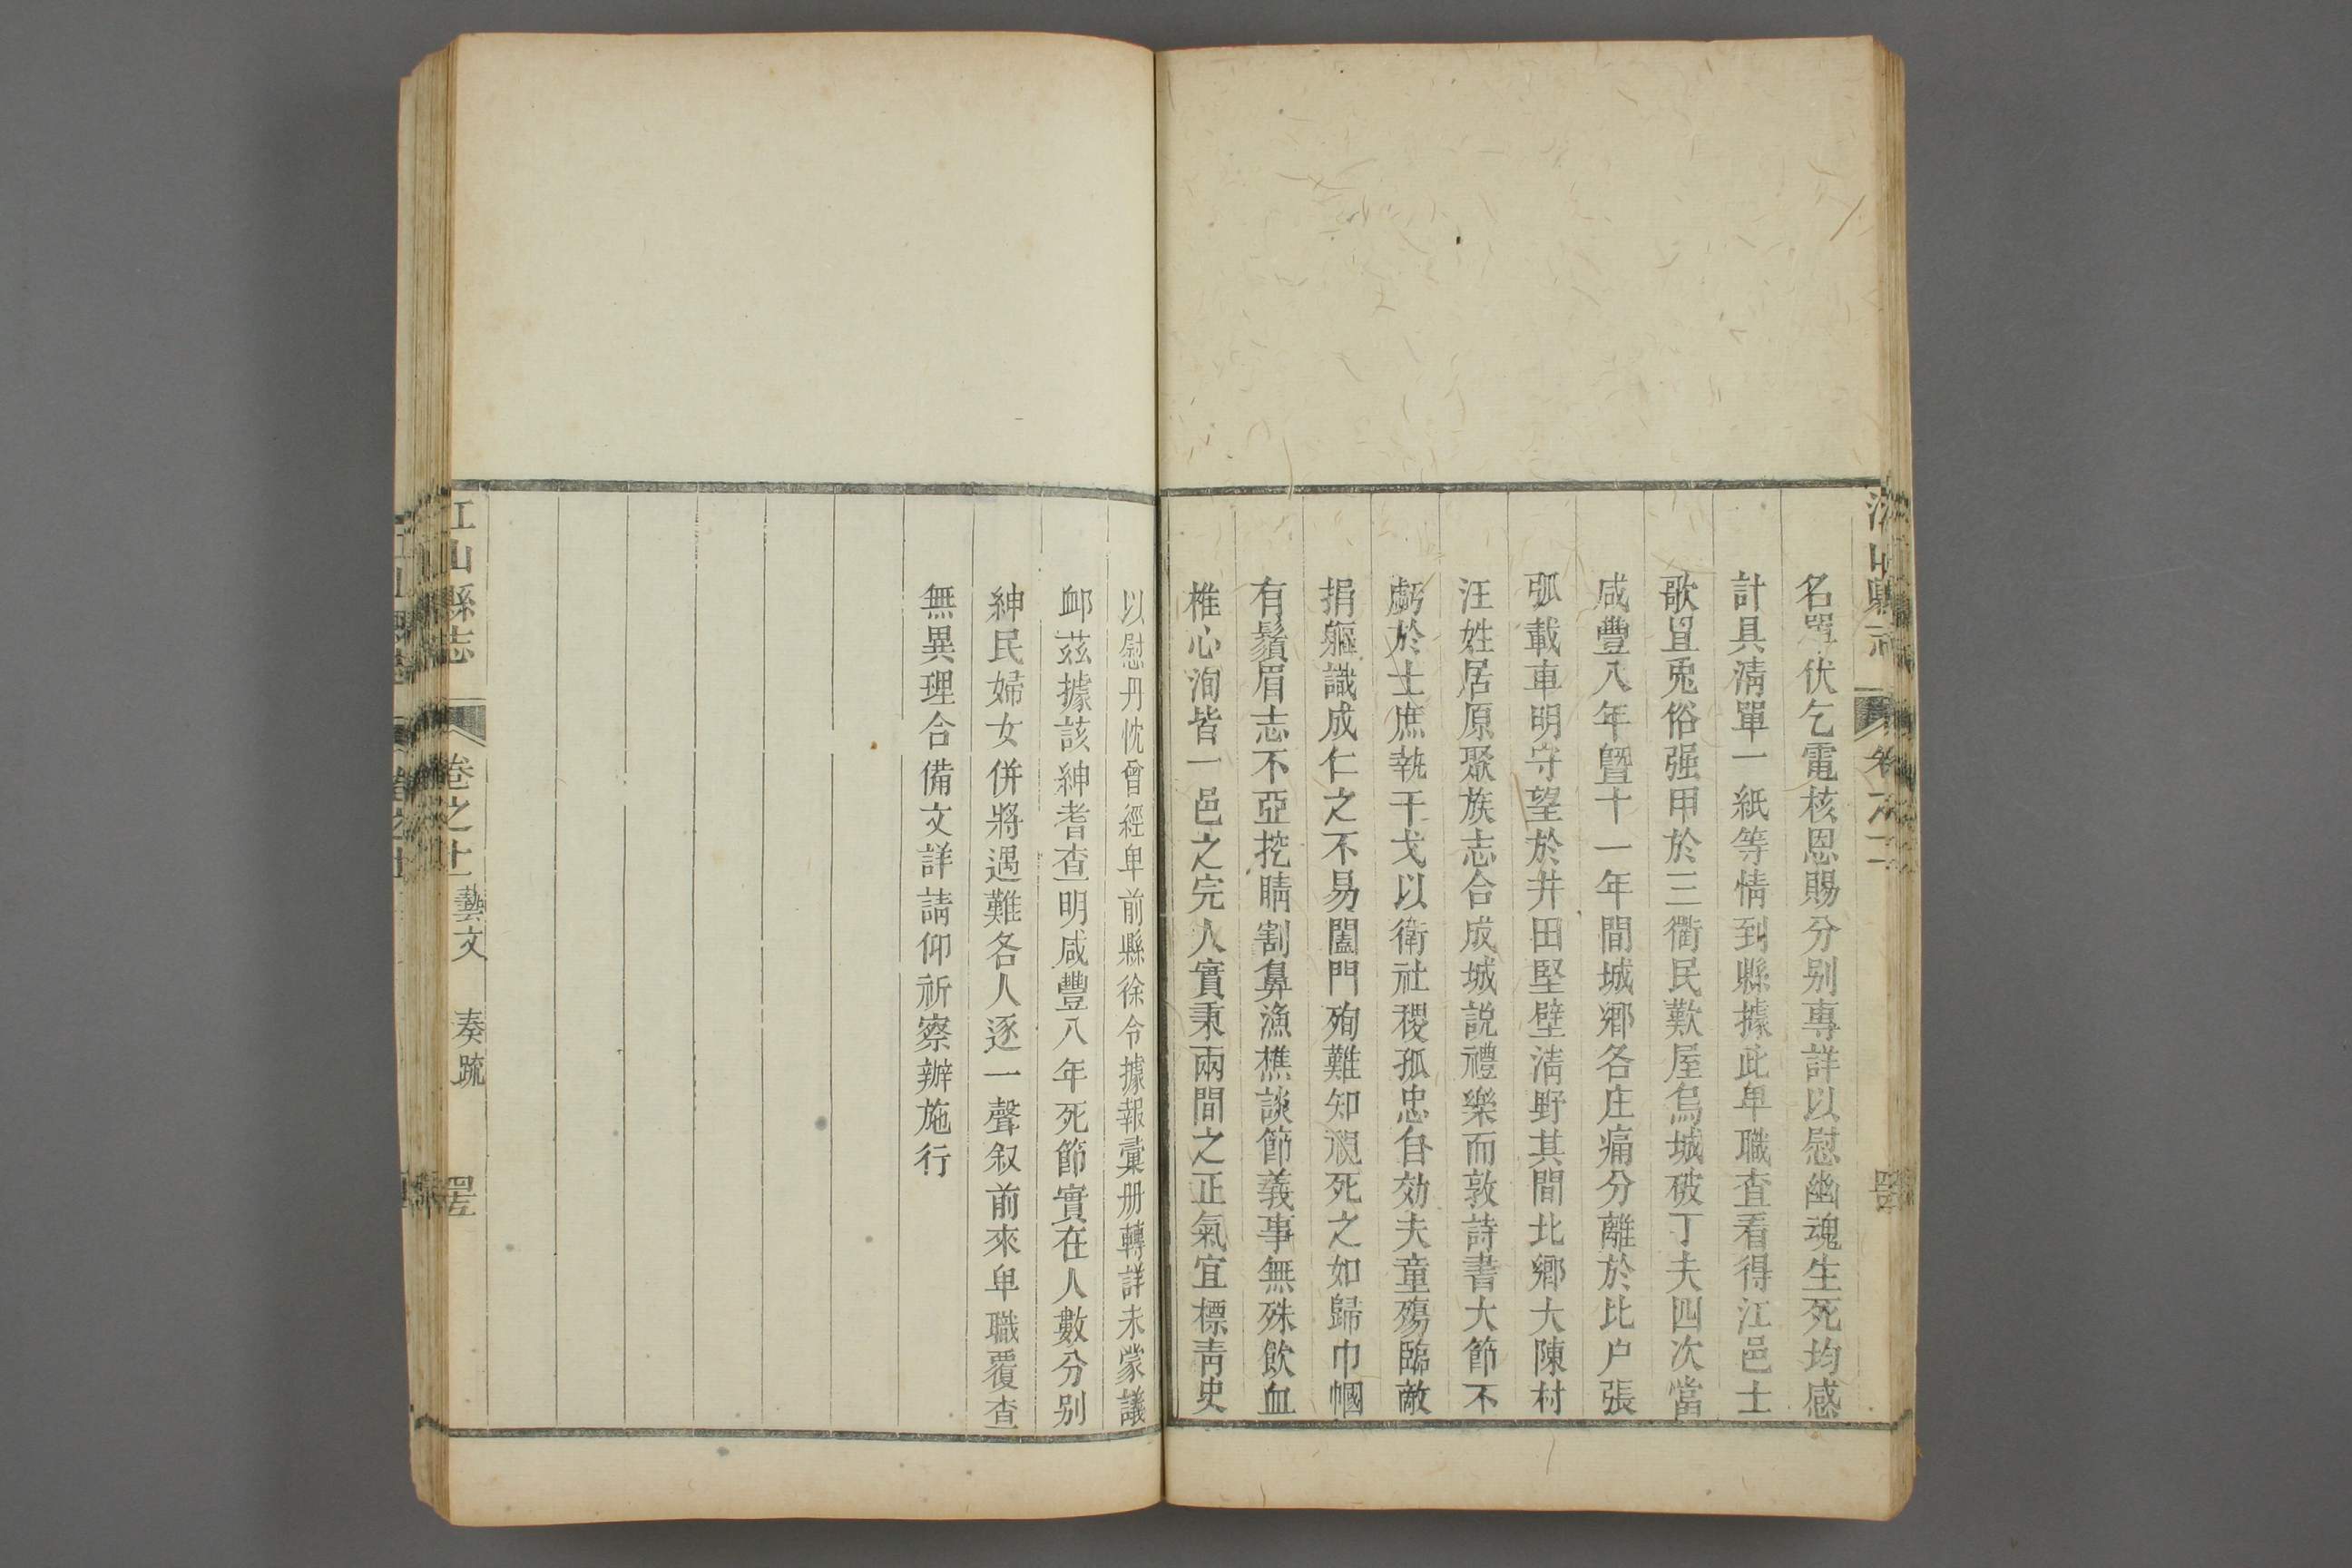 名單伏乞電核恩賜分别專詳以慰幽魂生死均感
計具淸單一紙等情到縣據此卑職查看得江邑士
歌罝兎俗强甲於三衢民歎屋烏城破丁夫四次當
咸豐八年曁十一年間城鄉各庄痛分離於比户張
弧載車明守望於井田堅壁淸野其間北鄉大陳村
汪姓居原聚族志合成城説禮樂而敦詩書大節不
虧於士庶執干戈以衛社稷孤忠自効夫童殤臨敵
捐軀識成仁之不易闔門殉難知視死之如歸巾幗
有鬚眉志不亞挖睛割鼻漁樵談節義事無殊飲血
椎心洵皆一邑之完人實秉兩間之正氣宜標靑史
以慰丹忱曾經卑前縣徐令據報彙册轉詳未蒙議
卹茲據該紳耆查明咸豐八年死節實在人數分别
紳民婦女併將遇難各人逐一聲叙前來卑職覆查
無異理合備文詳請仰祈察辦施行
江山縣志 卷之十一 藝文 奏疏